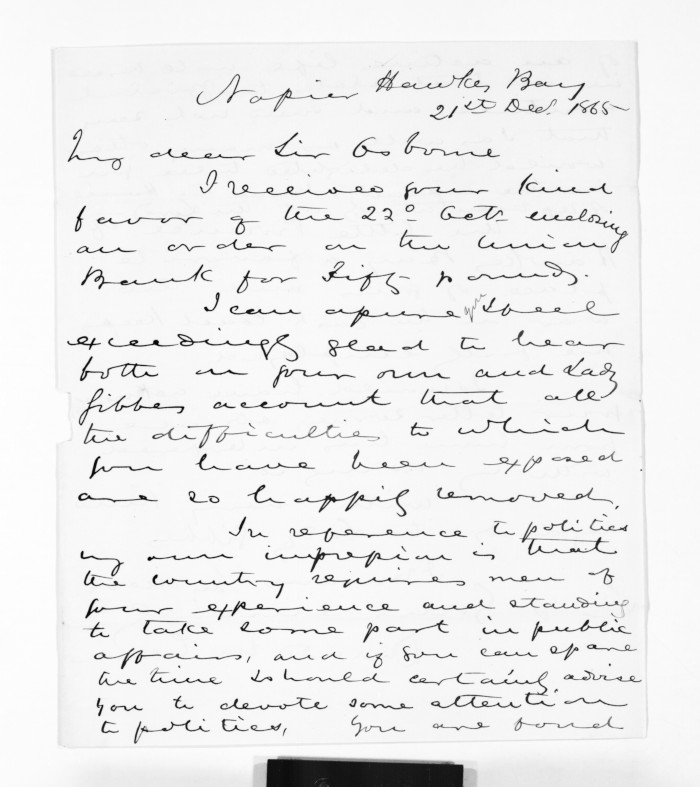 Napier Hawkes Bay
21st Decr. 1865
My dear Sir Osborne
I received your kind
favor of the 22d. Octr. enclosing
an order on the Union
Bank for Fifty pounds.
I can assure you I feel
exceedingly glad to hear
both on your own and Lady
Gibbes account that all
the difficulties to which
you have been exposed
are so happily removed.
In reference to politics
my own impression is that
the country requires men of
your experience and standing
to take some part in public
affairs, and if you can spare
the time I should certainly advise
you to devote some attention
to politics, You are bound